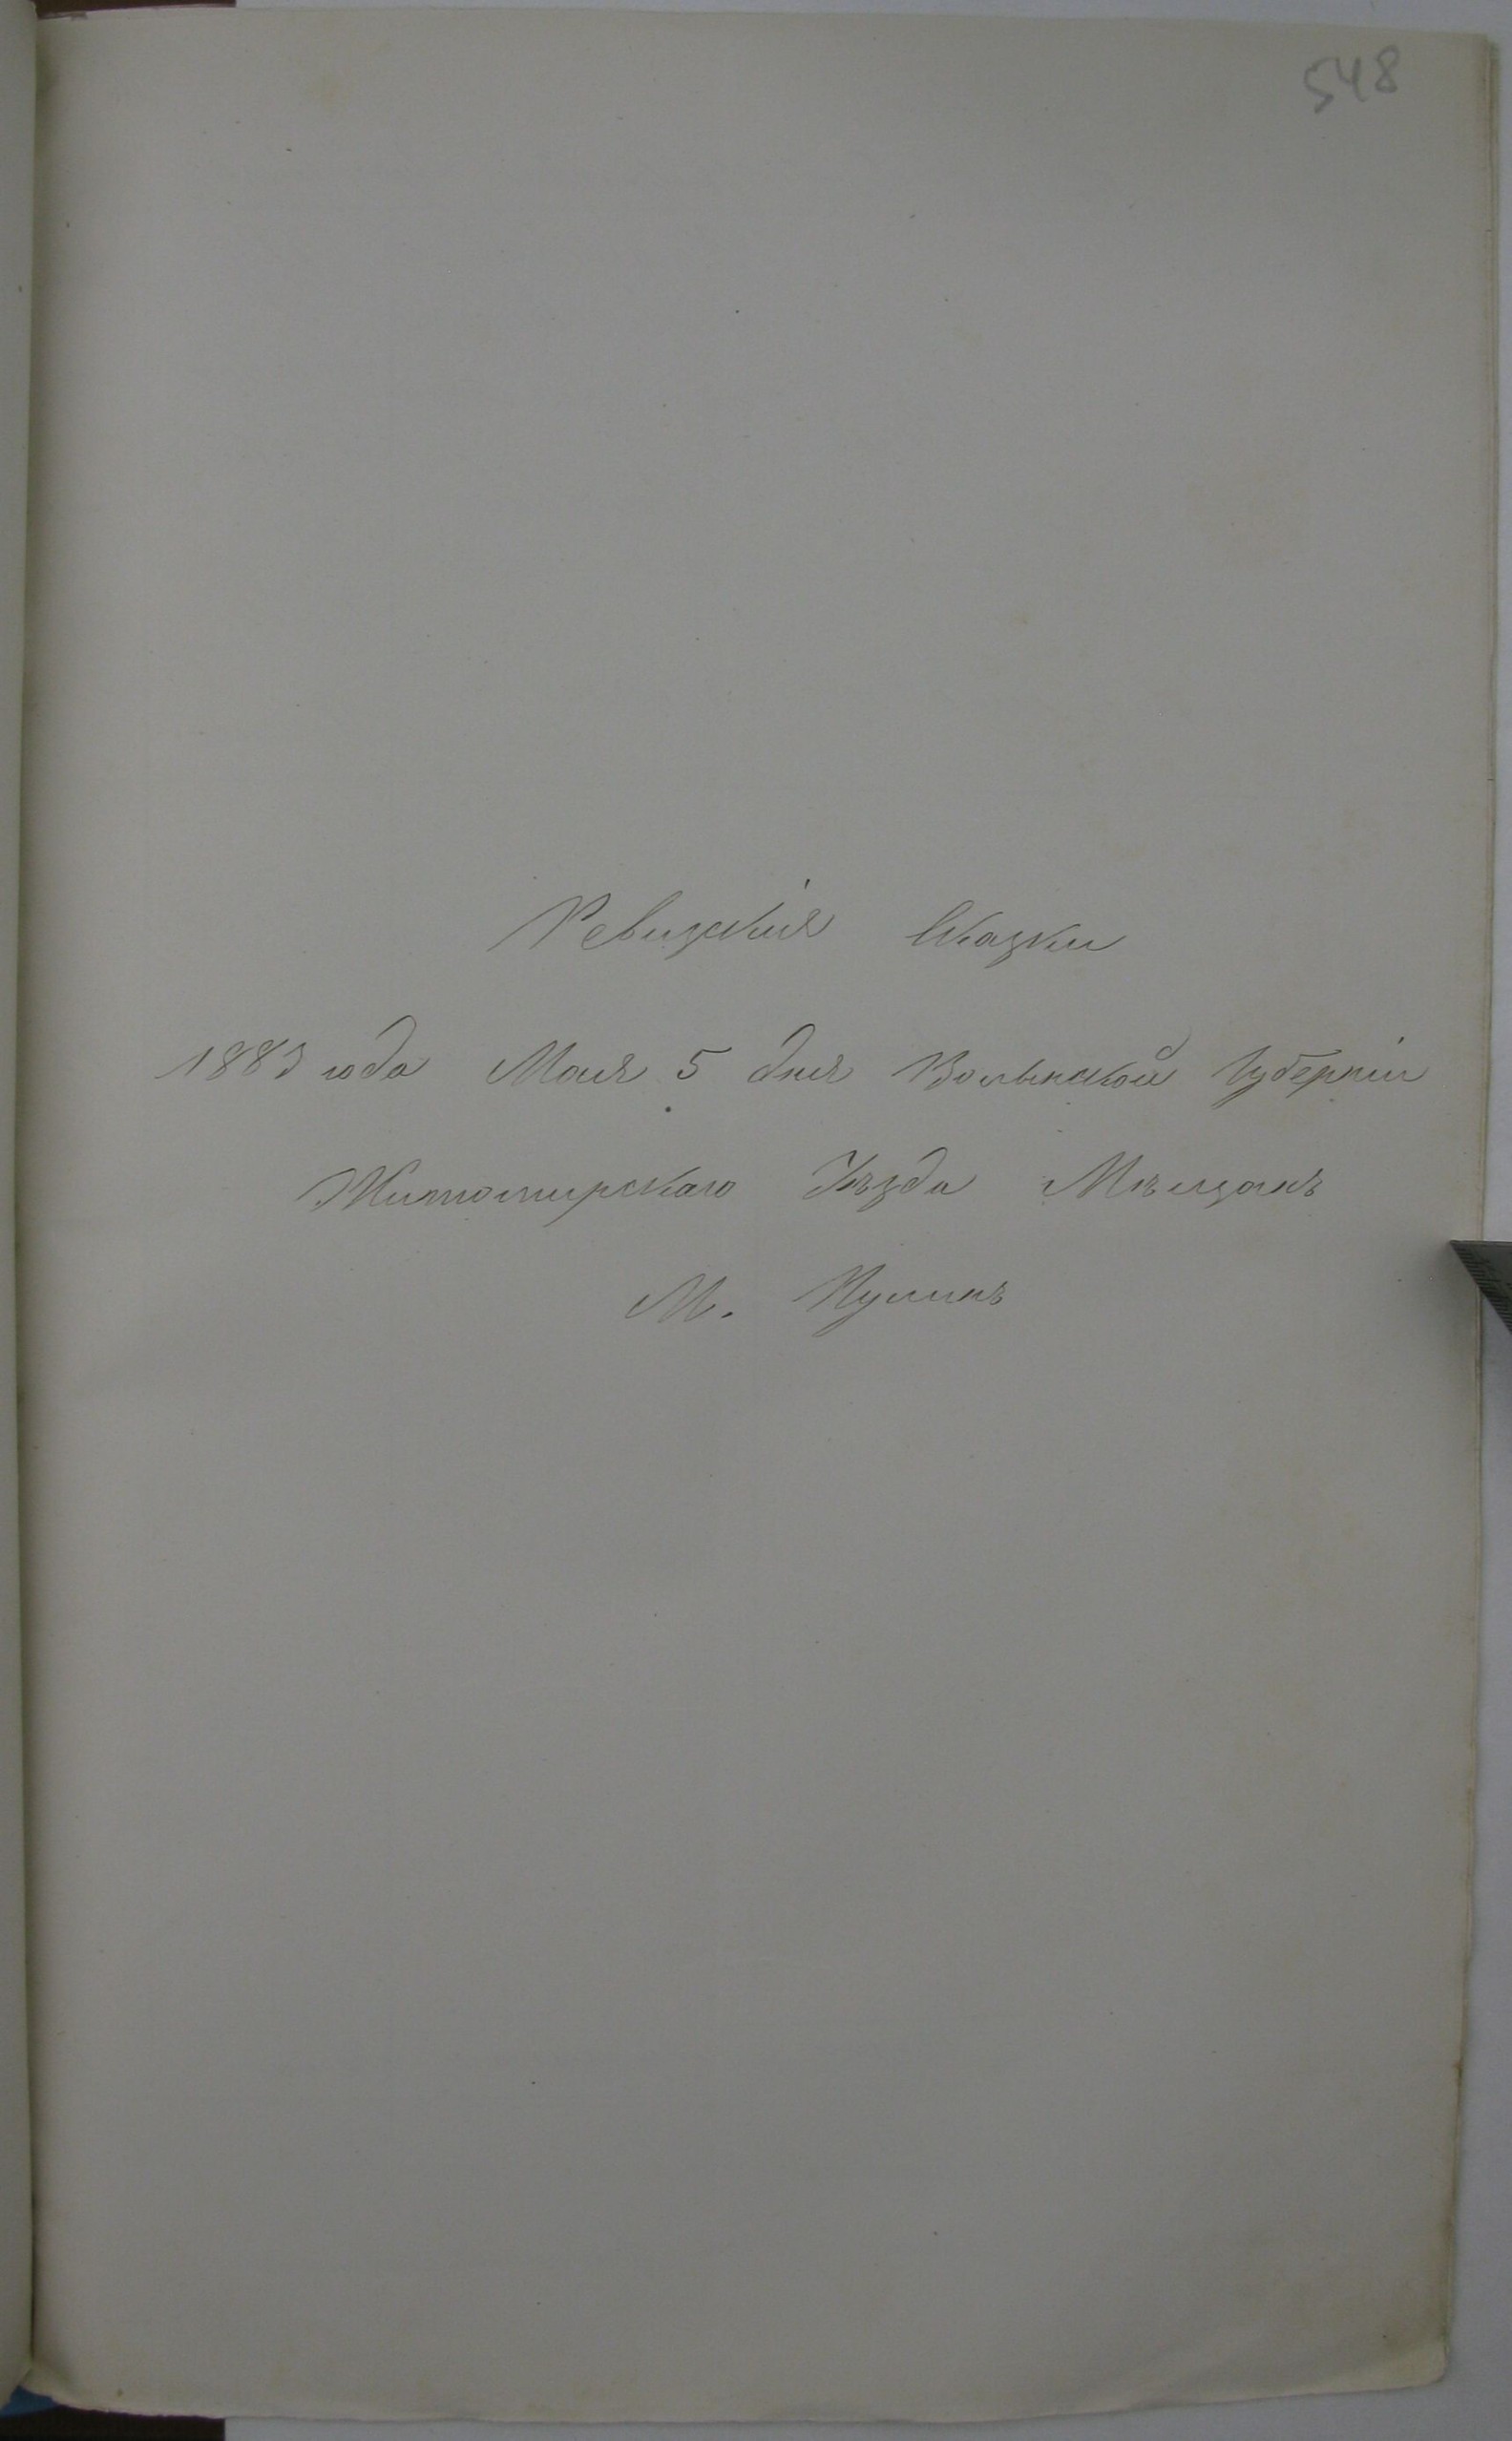 548
Ревизскія Сказки
1883 года Мая 5 дня Волынской Губерніи
Житомирскаго Уѣзда Мѣщанъ
М. Пулинъ